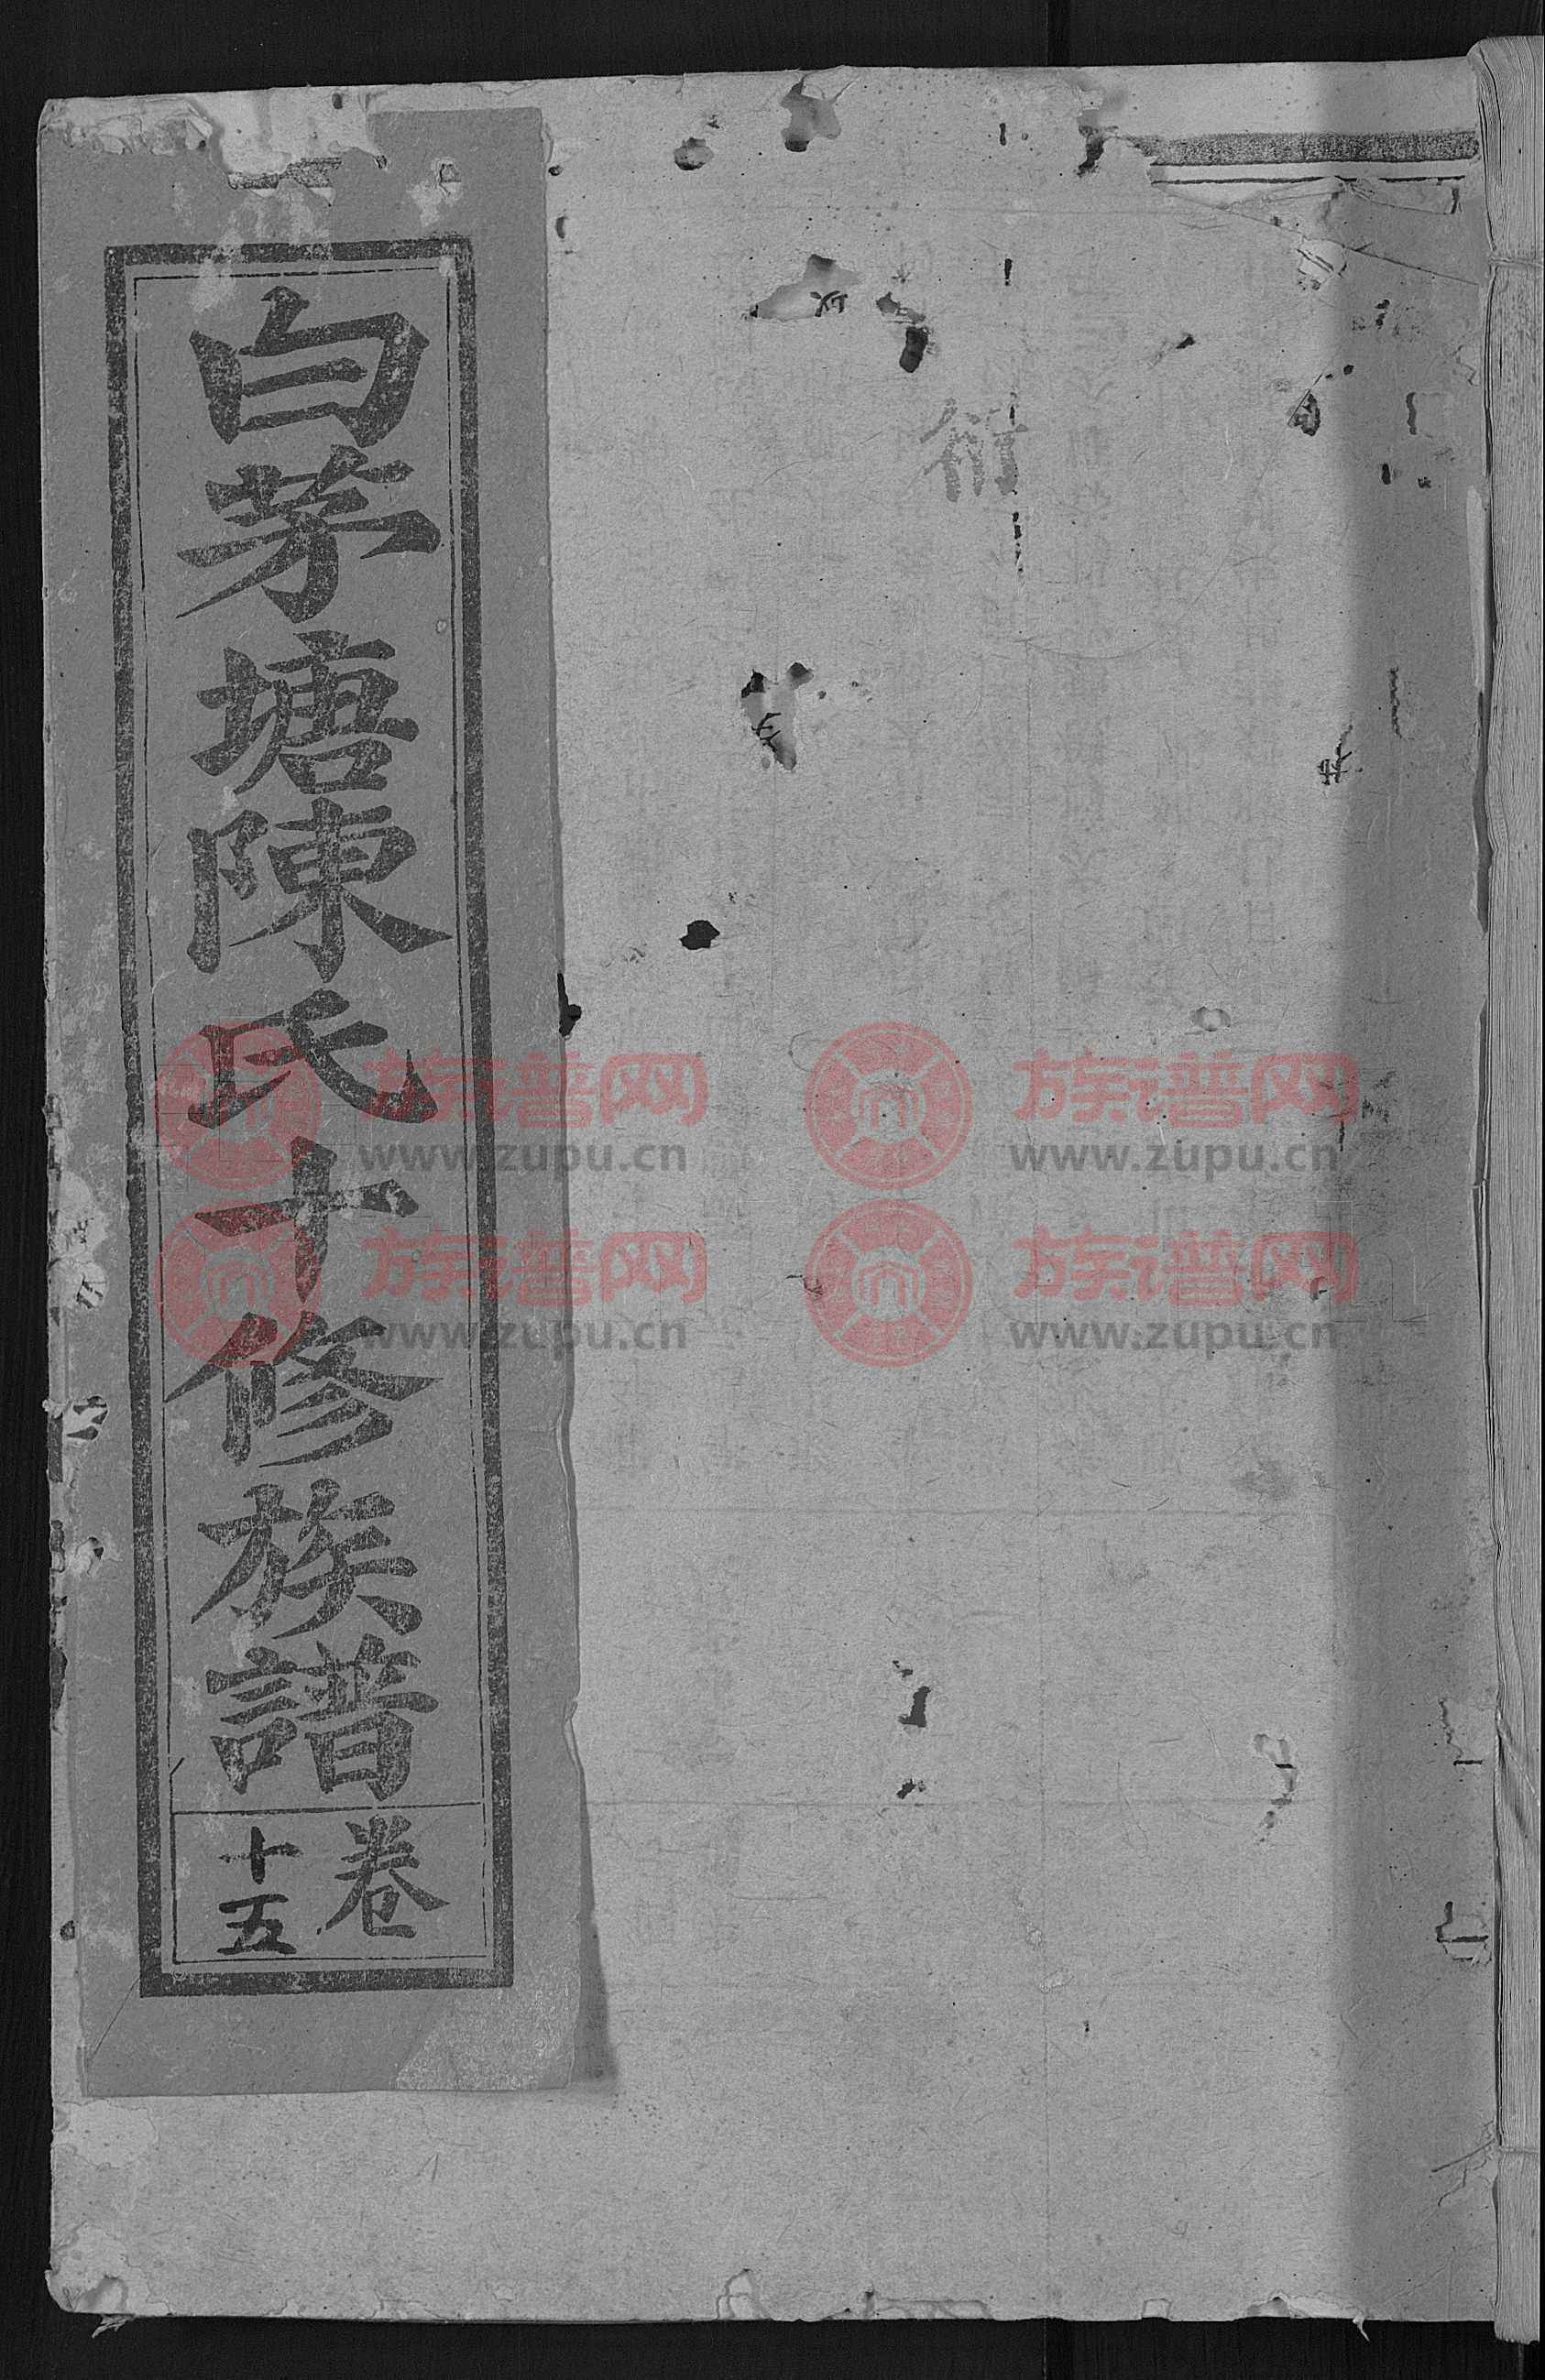 白茅塘陳氏十修族譜
卷
十五
衍
族谱网
www.zupu.cn
族谱网
www.zupu.cn
族谱网
www.zupu.cn
族谱网
www.zupu.cn